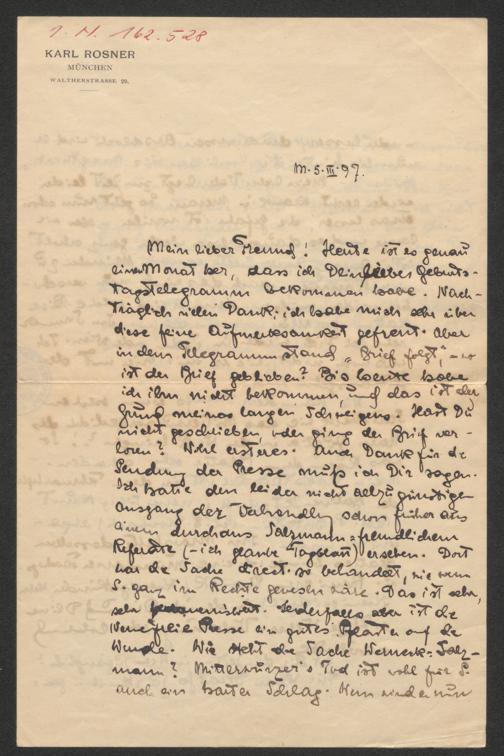 I. N. 162.528
KARL ROSNER
MÜNCHEN
WALTHERSTRASSE 22.
M. 5. III. 97.
Mein lieber Freund! Heute ist es genau
einen Monat her, dass ich Dein liebes Geburts-
tagstelegramm bekommen habe. Nach-
träglich vielen Dank; ich habe mich sehr über
diese feine Aufmerksamkeit gefreut. Aber
in dem Telegramm stand „Brief folgt" – wo
ist der Brief geblieben? Bis heute habe
ich ihn nicht bekommen, und das ist der
Grund meines langen Schweigens. Hast Du
nicht geschrieben, oder ging der Brief ver-
loren? Wohl ersteres. Auch Dank für die
Sendung der Presse muß ich Dir sagen.
Ich hatte den leider nicht allzu günstigen
Ausgang der Verhandlg schon früher aus
einem durchaus Salzmann-freundlichem
Referate (– ich glaube Tagblatt) ersehen. Dort
war die Sache direct so behandelt, wie wenn
S. ganz im Rechte gewesen wäre. Das ist sehr,
sehr Jedenfalls aber ist die
Neue freie Presse ein gutes Pflaster auf die
Wunde. Wie steht die Sache Werneck-Salz-
mann? Mitterwurzer's Tod ist wohl für S.
auch ein harter Schlag. Wem wird er nun